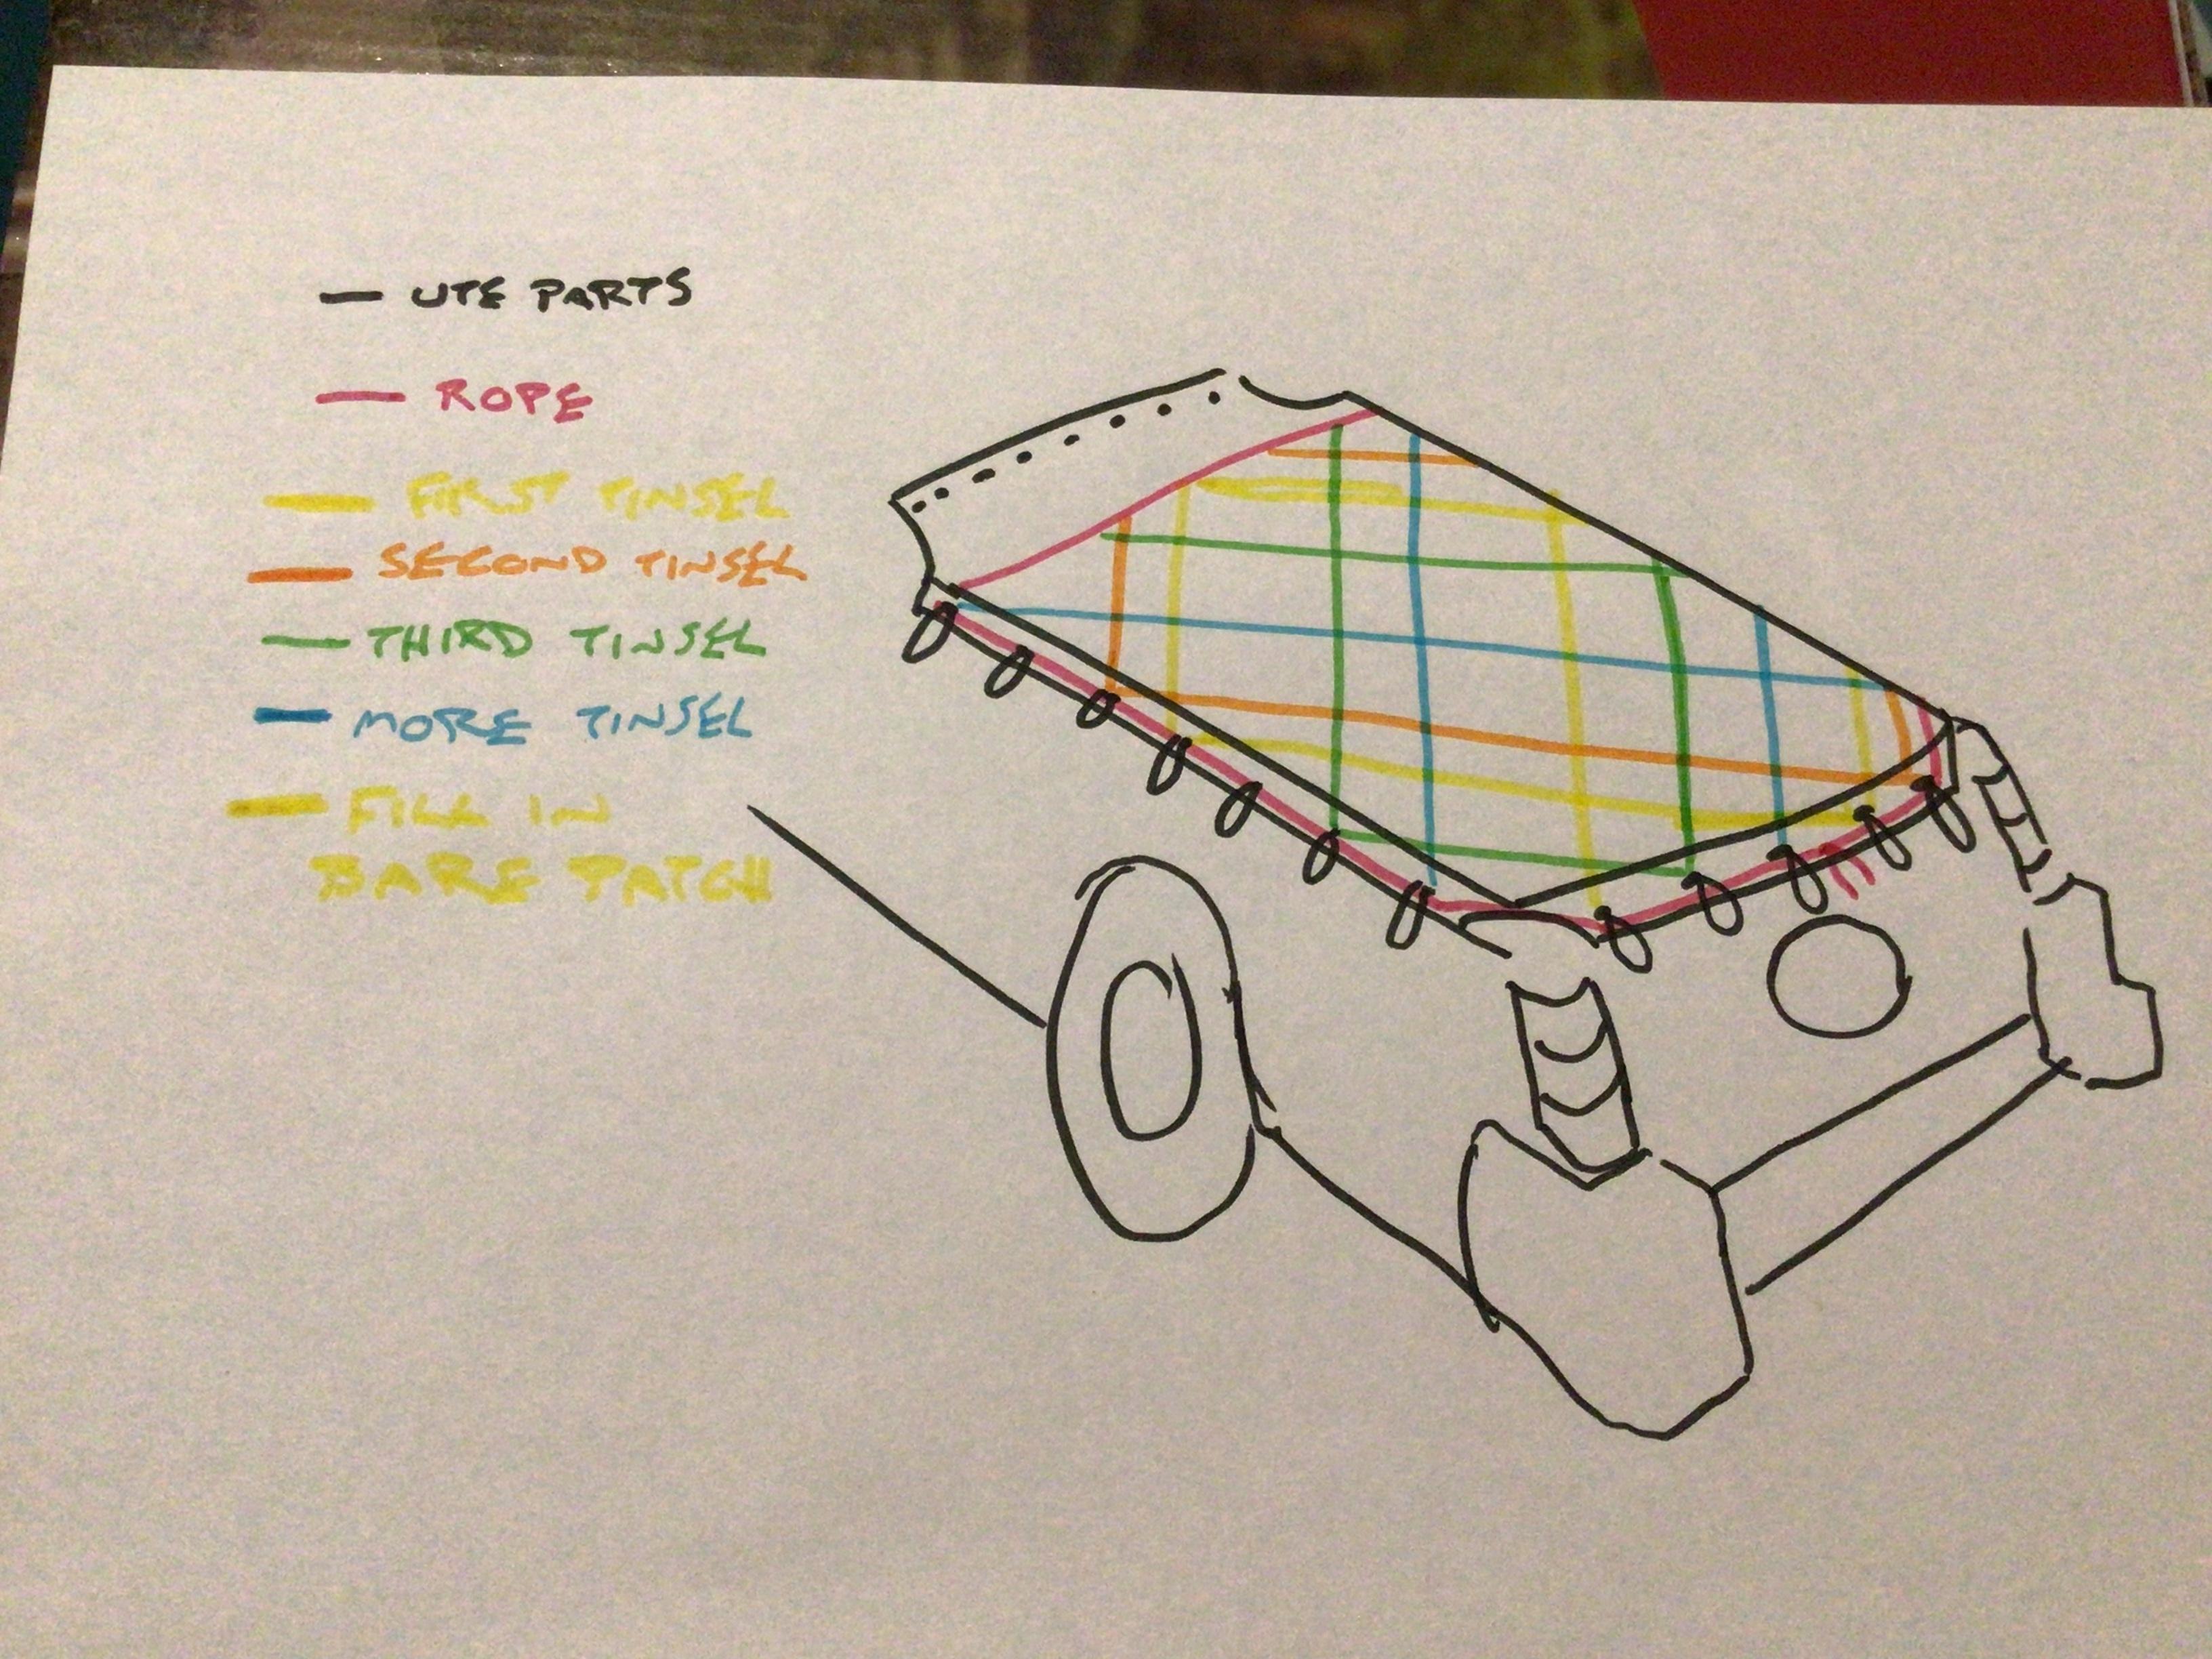 — UTE PARTS
— ROPE
— FIRST TINSEL
— SECOND TINSEL
— THIRD TINSEL
— MORE TINSEL
— FILL IN
BARE PATCH